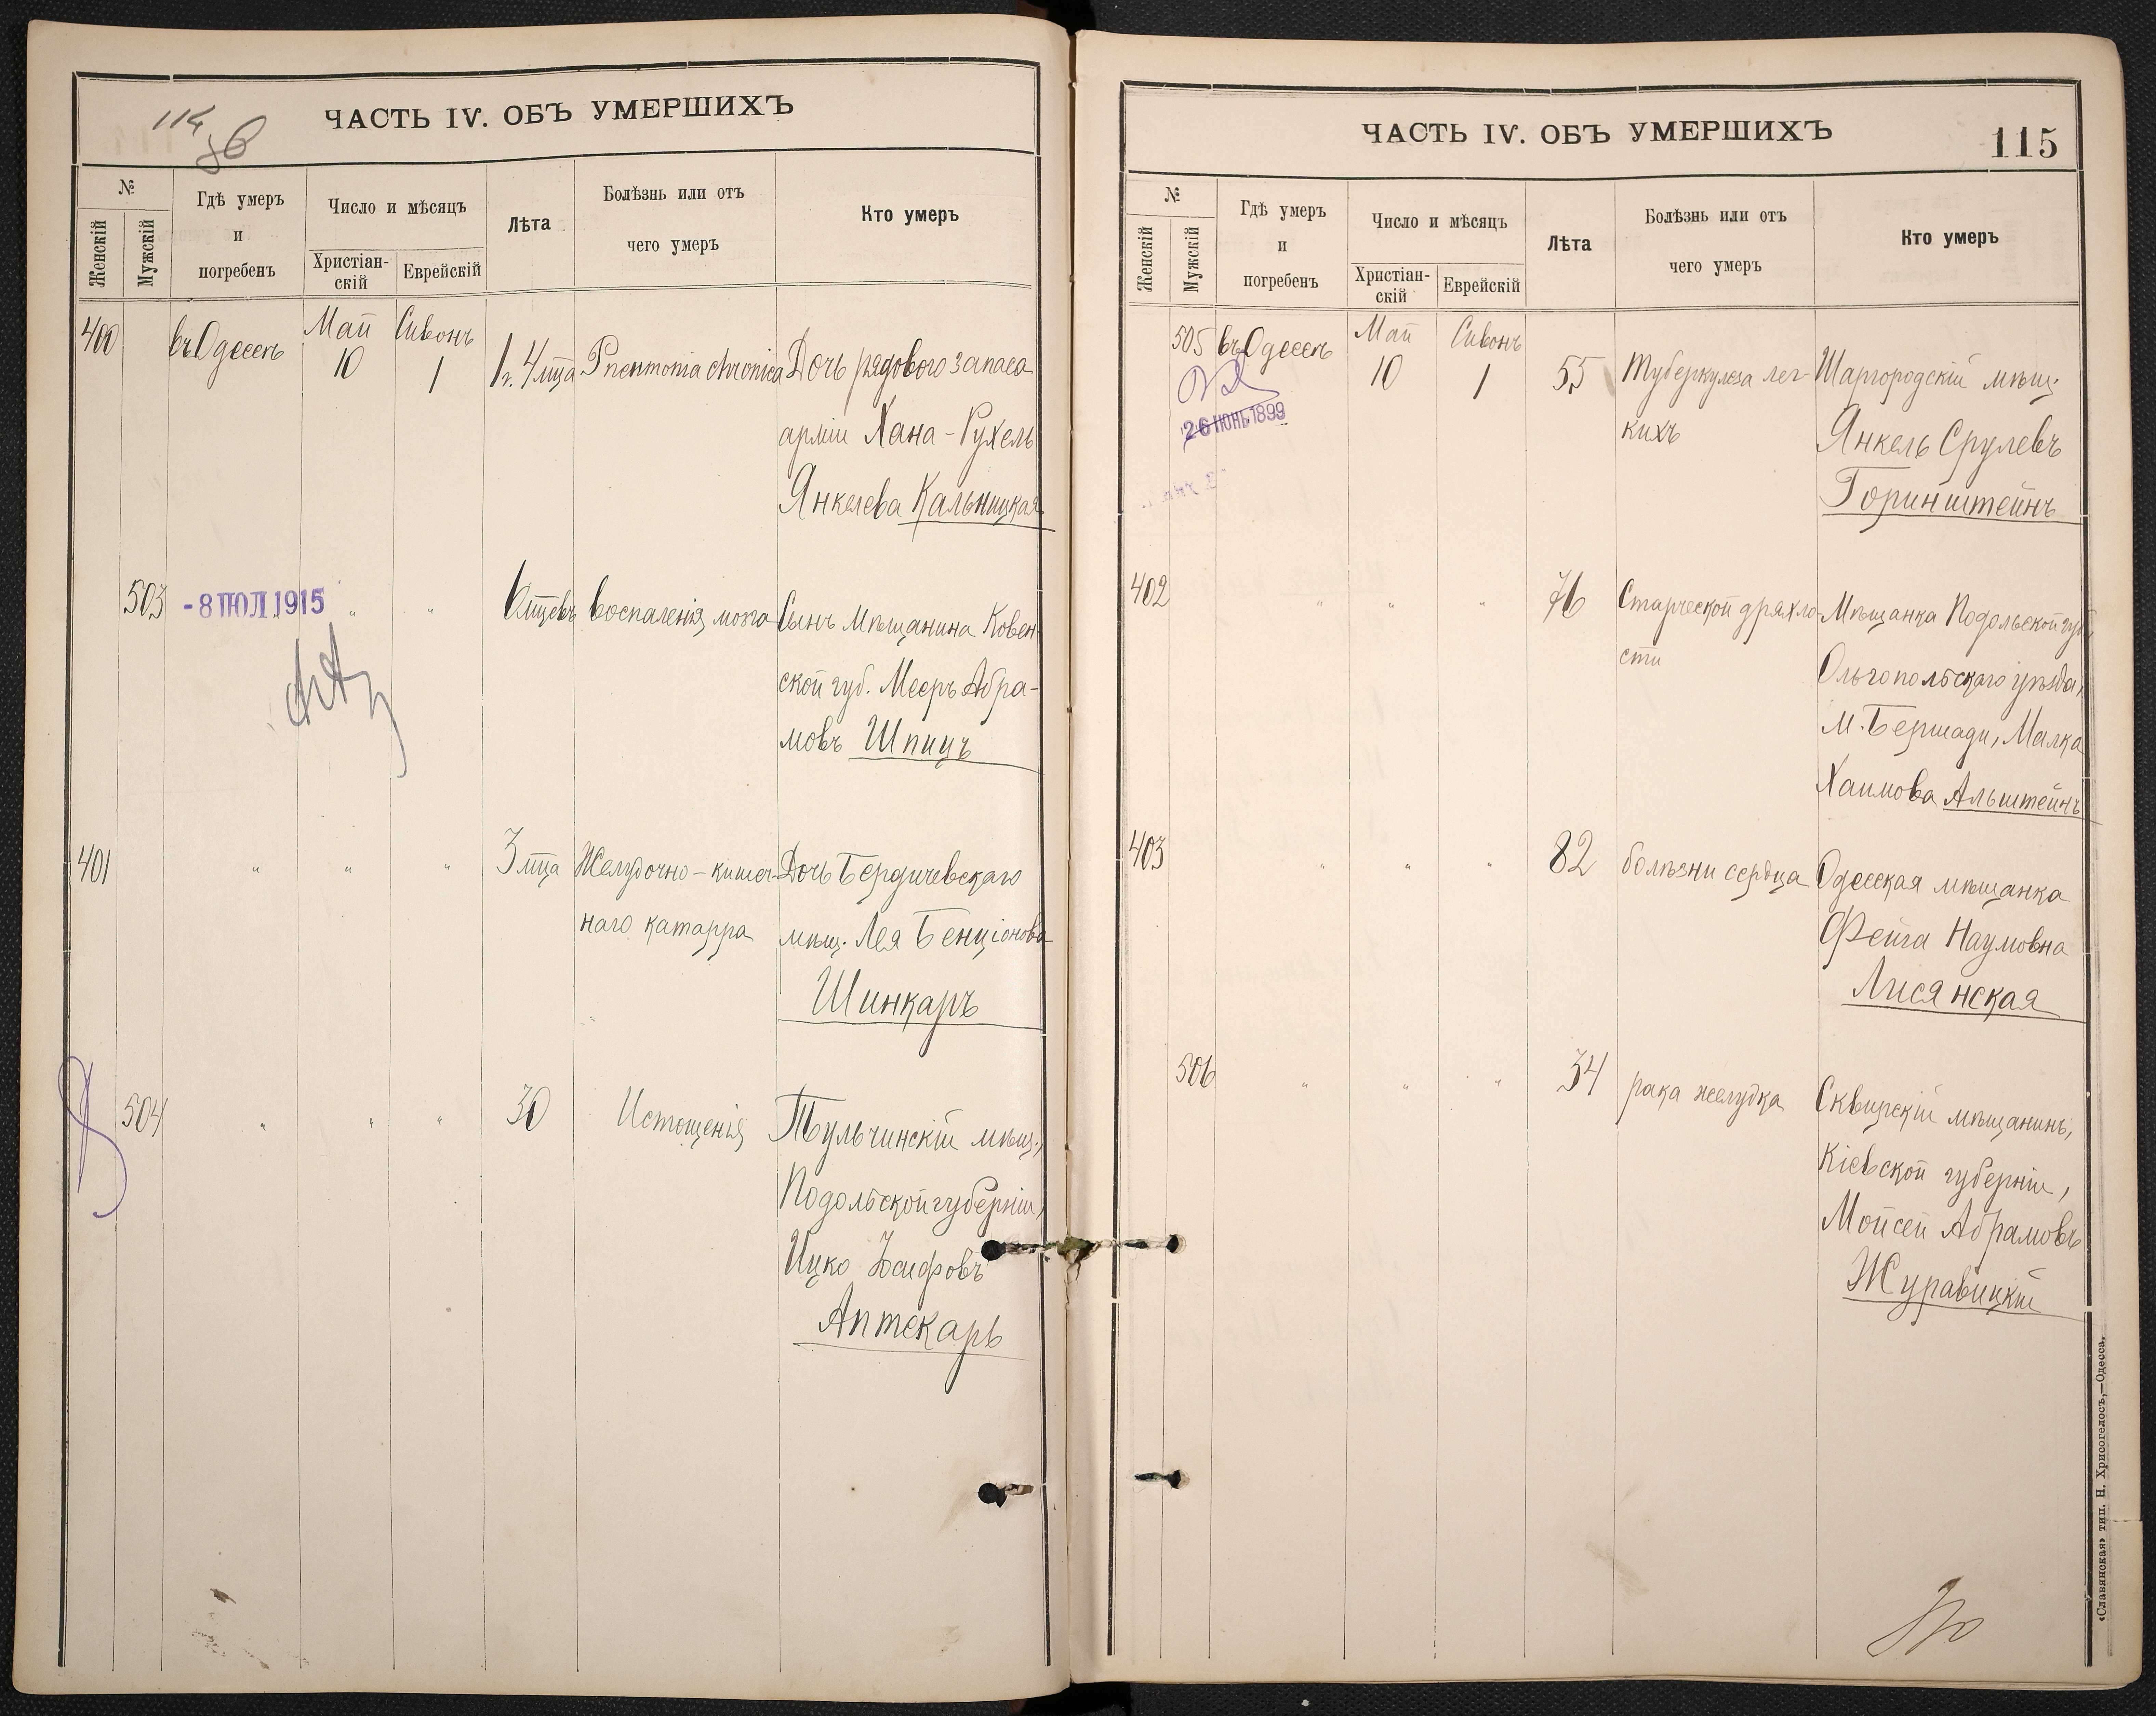 114 об
ЧАСТЬ IV. ОБЪ УМЕРШИХЪ
№
Женскій
Мужскій
Гдѣ умеръ
и
погребенъ
Число и мѣсяцъ
Христіан-
скій
Еврейскій
Лѣта
Болѣзнь или отъ
чего умеръ
Кто умеръ
400 въ Одессѣ Май 10 Сивонъ 1 1 г. 4 мца Pneumonia chronica Дочь рядового запаса
арміи Хана-Рухель
Янкелева Кальницкая
503 -8 ІЮЛ. 1915 " " 6 мцевъ воспаленія мозга Сынъ Мѣщанина Ковен-
ской губ. Мееръ Абра-
мовъ Шпицъ
401 " " " 3 мца Желудочно-кишеч- Дочь Бердичевскаго
наго катарра мѣщ. Лея Бенціонова
Шинкаръ
504 " " " 30 Истощенія Тульчинскій мѣщ.,
Подольской губерніи,
Ицко Іосифовъ
Аптекарь
ЧАСТЬ IV. ОБЪ УМЕРШИХЪ
115
№
Женскій
Мужскій
Гдѣ умеръ
и
погребенъ
Число и мѣсяцъ
Христіан-
скій
Еврейскій
Лѣта
Болѣзнь или отъ
чего умеръ
Кто умеръ
505 въ Одессѣ Май 10 Сивонъ 1 55 Туберкулеза лег- Шаргородскій мѣщ.
кихъ Янкель Срулевъ
26 ІЮНЬ 1899
Горинштейнъ
402 " " " 76 Старческой дряхло- Мѣщанка Подольской губ.,
сти Ольгопольскаго уѣзда,
м. Бершади, Малка
Хаимова Альштейнъ
403 " " " 82 болѣзни сердца Одесская мѣщанка
Фейга Наумовна
Лисянская
506 " " " 34 рака желудка Сквирскій мѣщанинъ,
Кіевской губерніи,
Мойсей Абрамовъ
Журавицкій
«Славянская» тип. Н. Хрисогелосъ,—Одесса.